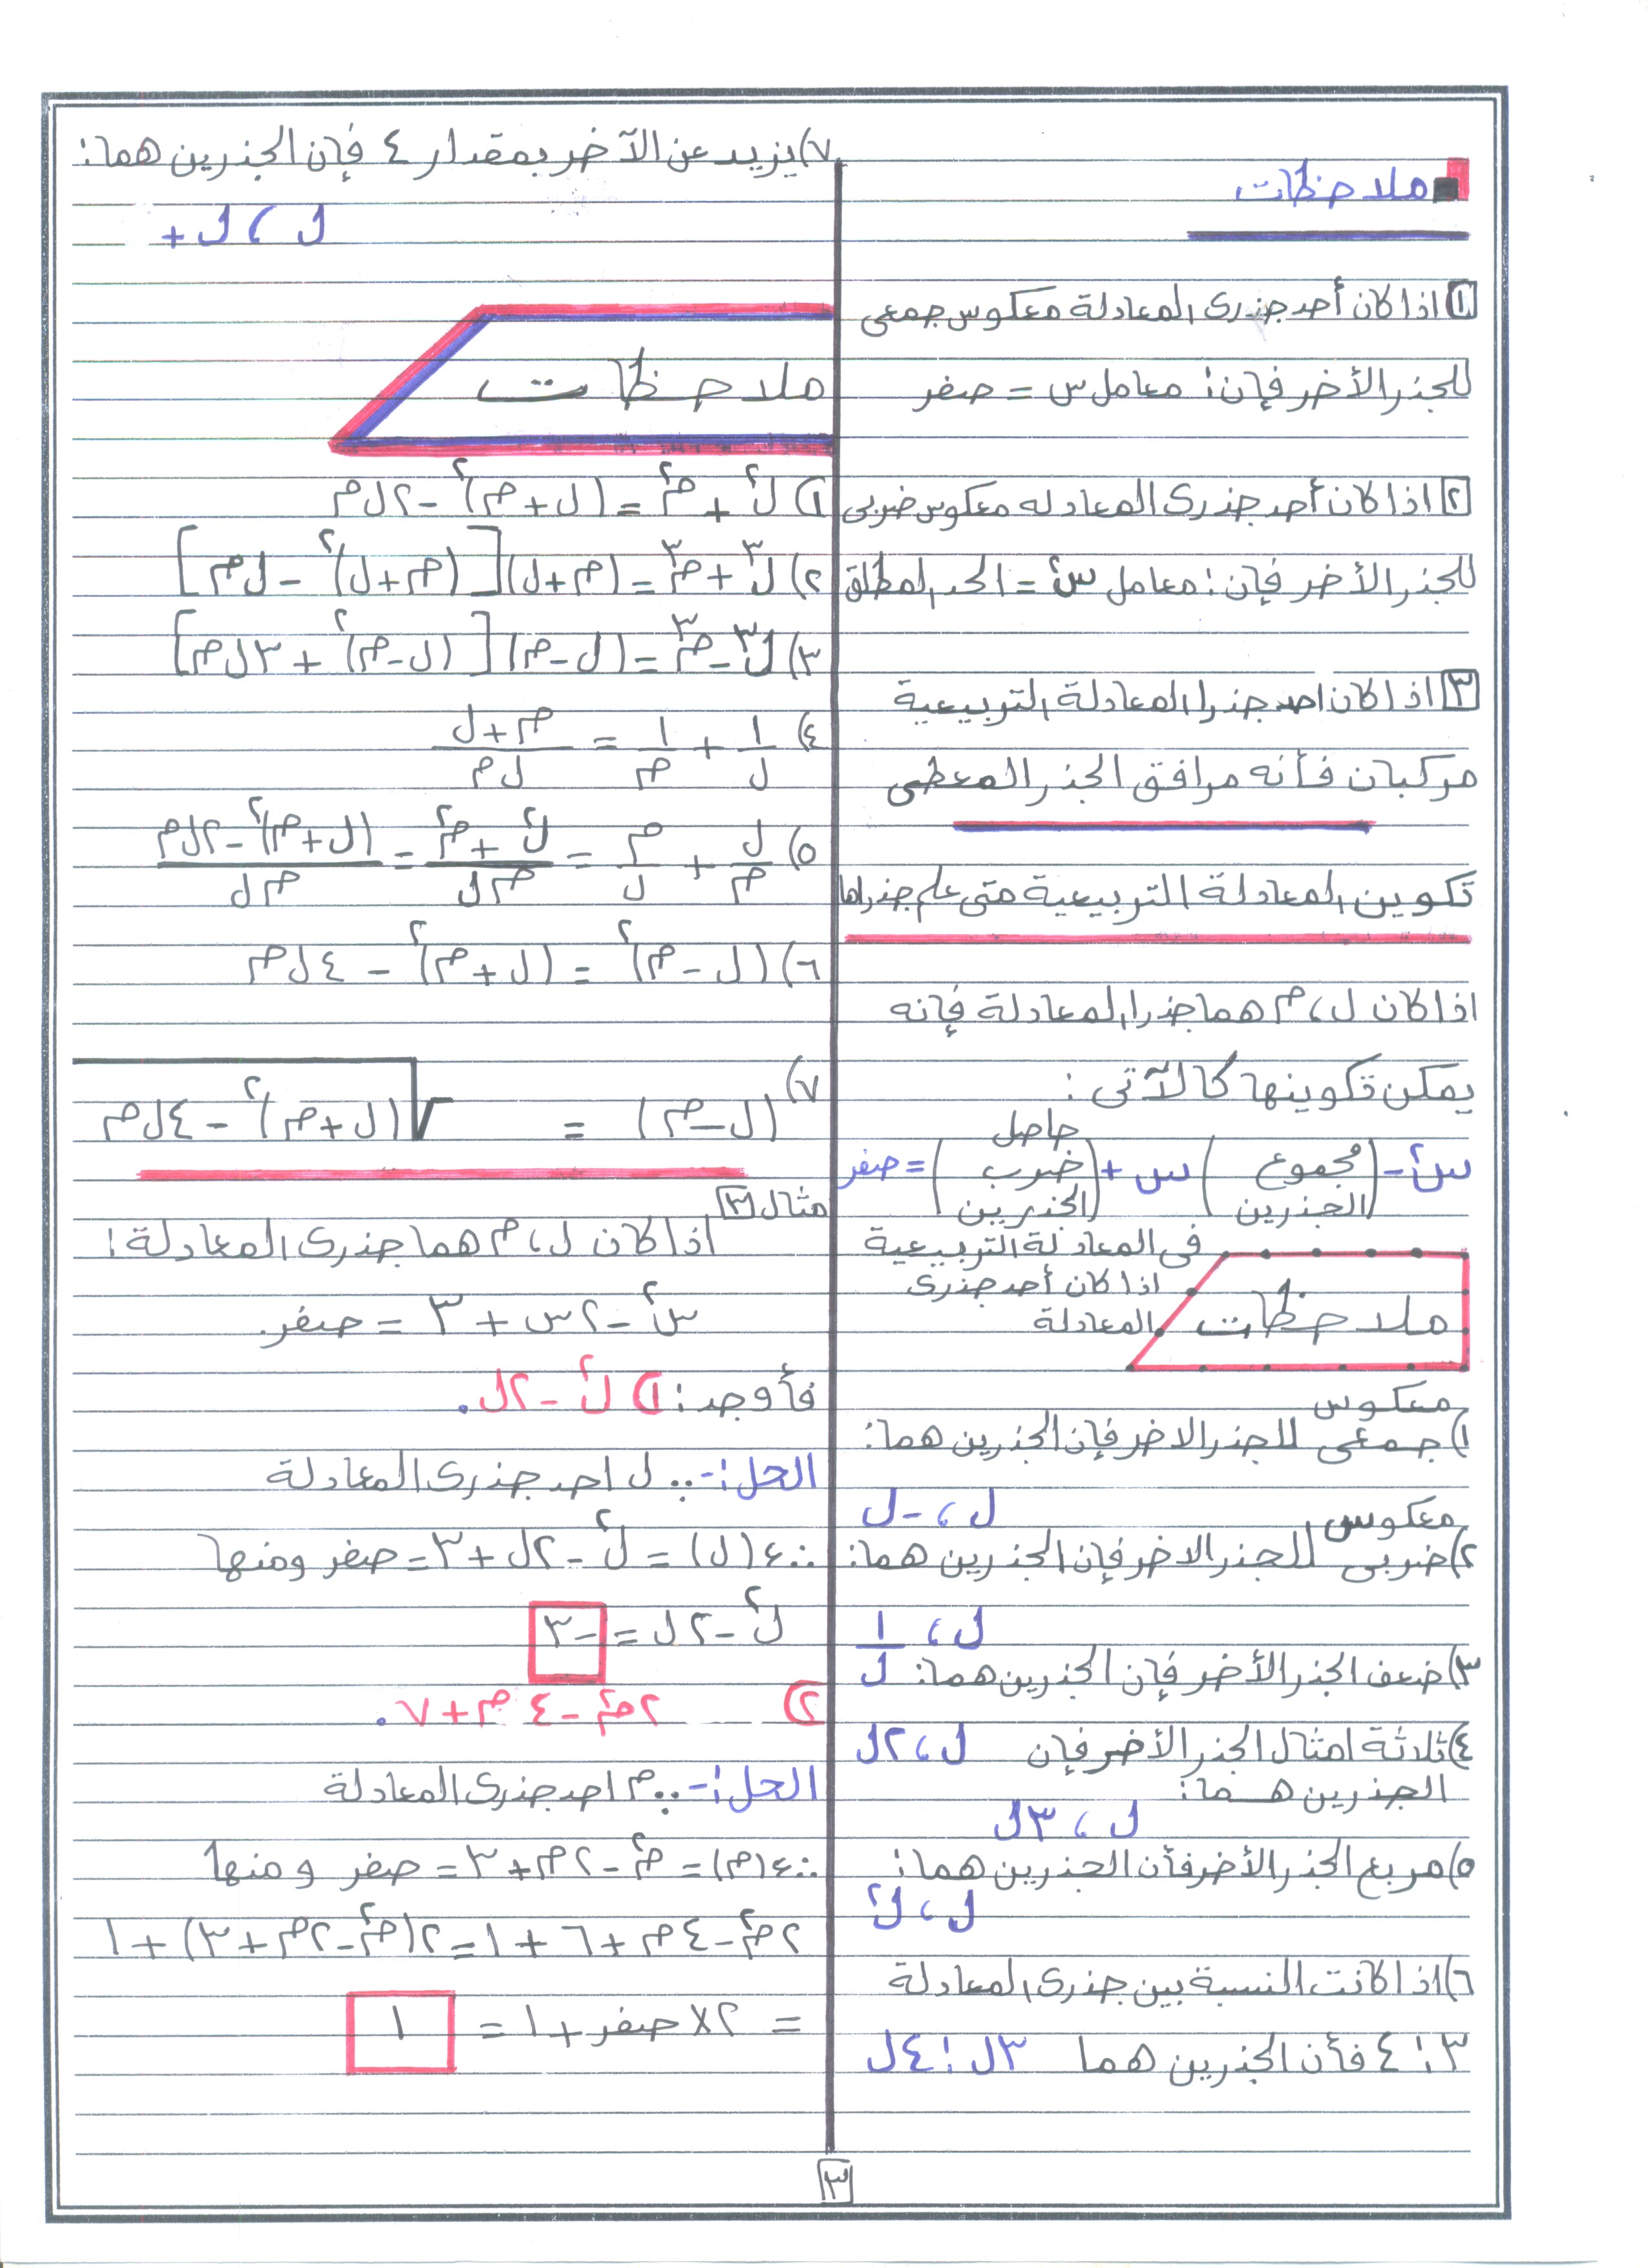 ملاحظات
١ اذا كان أحد جذرى المعادلة معكوس جمعى
للجذر الأخر فإن: معامل س = صفر
٢ اذا كان أحد جذرى المعادله معكوس ضربى
للجذر الأخر فإن: معامل س² = الحد المطلق
٣ اذا كان احد جذرا المعادلة التربيعية
مركبان فأنه مرافق الجذر المعطى
تكوين المعادلة التربيعية متى علم جذراها
اذا كان ل، م هما جذرا المعادلة فإنه
يمكن تكوينها كالآتى:
س² - (مجموع الجذرين) س + (حاصل ضرب الجذرين) = صفر
ملاحظات
فى المعادلة التربيعية
اذا كان أحد جذرى
المعادلة
١) معكوس جمعى للجذر الاخر فإن الجذرين هما:
ل، -ل
٢) معكوس ضربى للجذر الاخر فإن الجذرين هما:
ل، ١/ل
٣) ضعف الجذر الأخر فإن الجذرين هما:
ل، ٢ل
٤) ثلاثة امثال الجذر الأخر فإن
الجذرين هما:
ل، ٣ل
٥) مربع الجذر الأخر فأن الجذرين هما:
ل، ل²
٦) اذا كانت النسبة بين جذرى المعادلة
٣ : ٤ فأن الجذرين هما ٣ل : ٤ل
٧) يزيد عن الآخر بمقدار ٤ فإن الجذرين هما:
ل، ل +
ملاحظات
١) ل² + م² = (ل + م)² - ٢ل م
٢) ل³ + م³ = (م + ل) [(م + ل)² - ل م]
٣) ل³ - م³ = (ل - م) [(ل - م)² + ٣ل م]
٤) ١/ل + ١/م = (م + ل)/(ل م)
٥) ل/م + م/ل = (ل² + م²)/(م ل) = ((ل + م)² - ٢ل م)/(م ل)
٦) (ل - م)² = (ل + م)² - ٤ل م
٧) (ل - م) = √((ل + م)² - ٤ل م)
مثال ٣
اذا كان ل، م هما جذرى المعادلة:
س² - ٢س + ٣ = صفر.
فأوجد: ١) ل² - ٢ل.
الحل:- ∵ ل احد جذرى المعادلة
∴ ء(ل) = ل² - ٢ل + ٣ = صفر ومنها
ل² - ٢ل = -٣
٢) ٢م² - ٤م + ٧.
الحل:- ∵ م احد جذرى المعادلة
∴ ء(م) = م² - ٢م + ٣ = صفر ومنها
٢م² - ٤م + ٦ + ١ = ٢(م² - ٢م + ٣) + ١
= ٢ × صفر + ١ = ١
٣